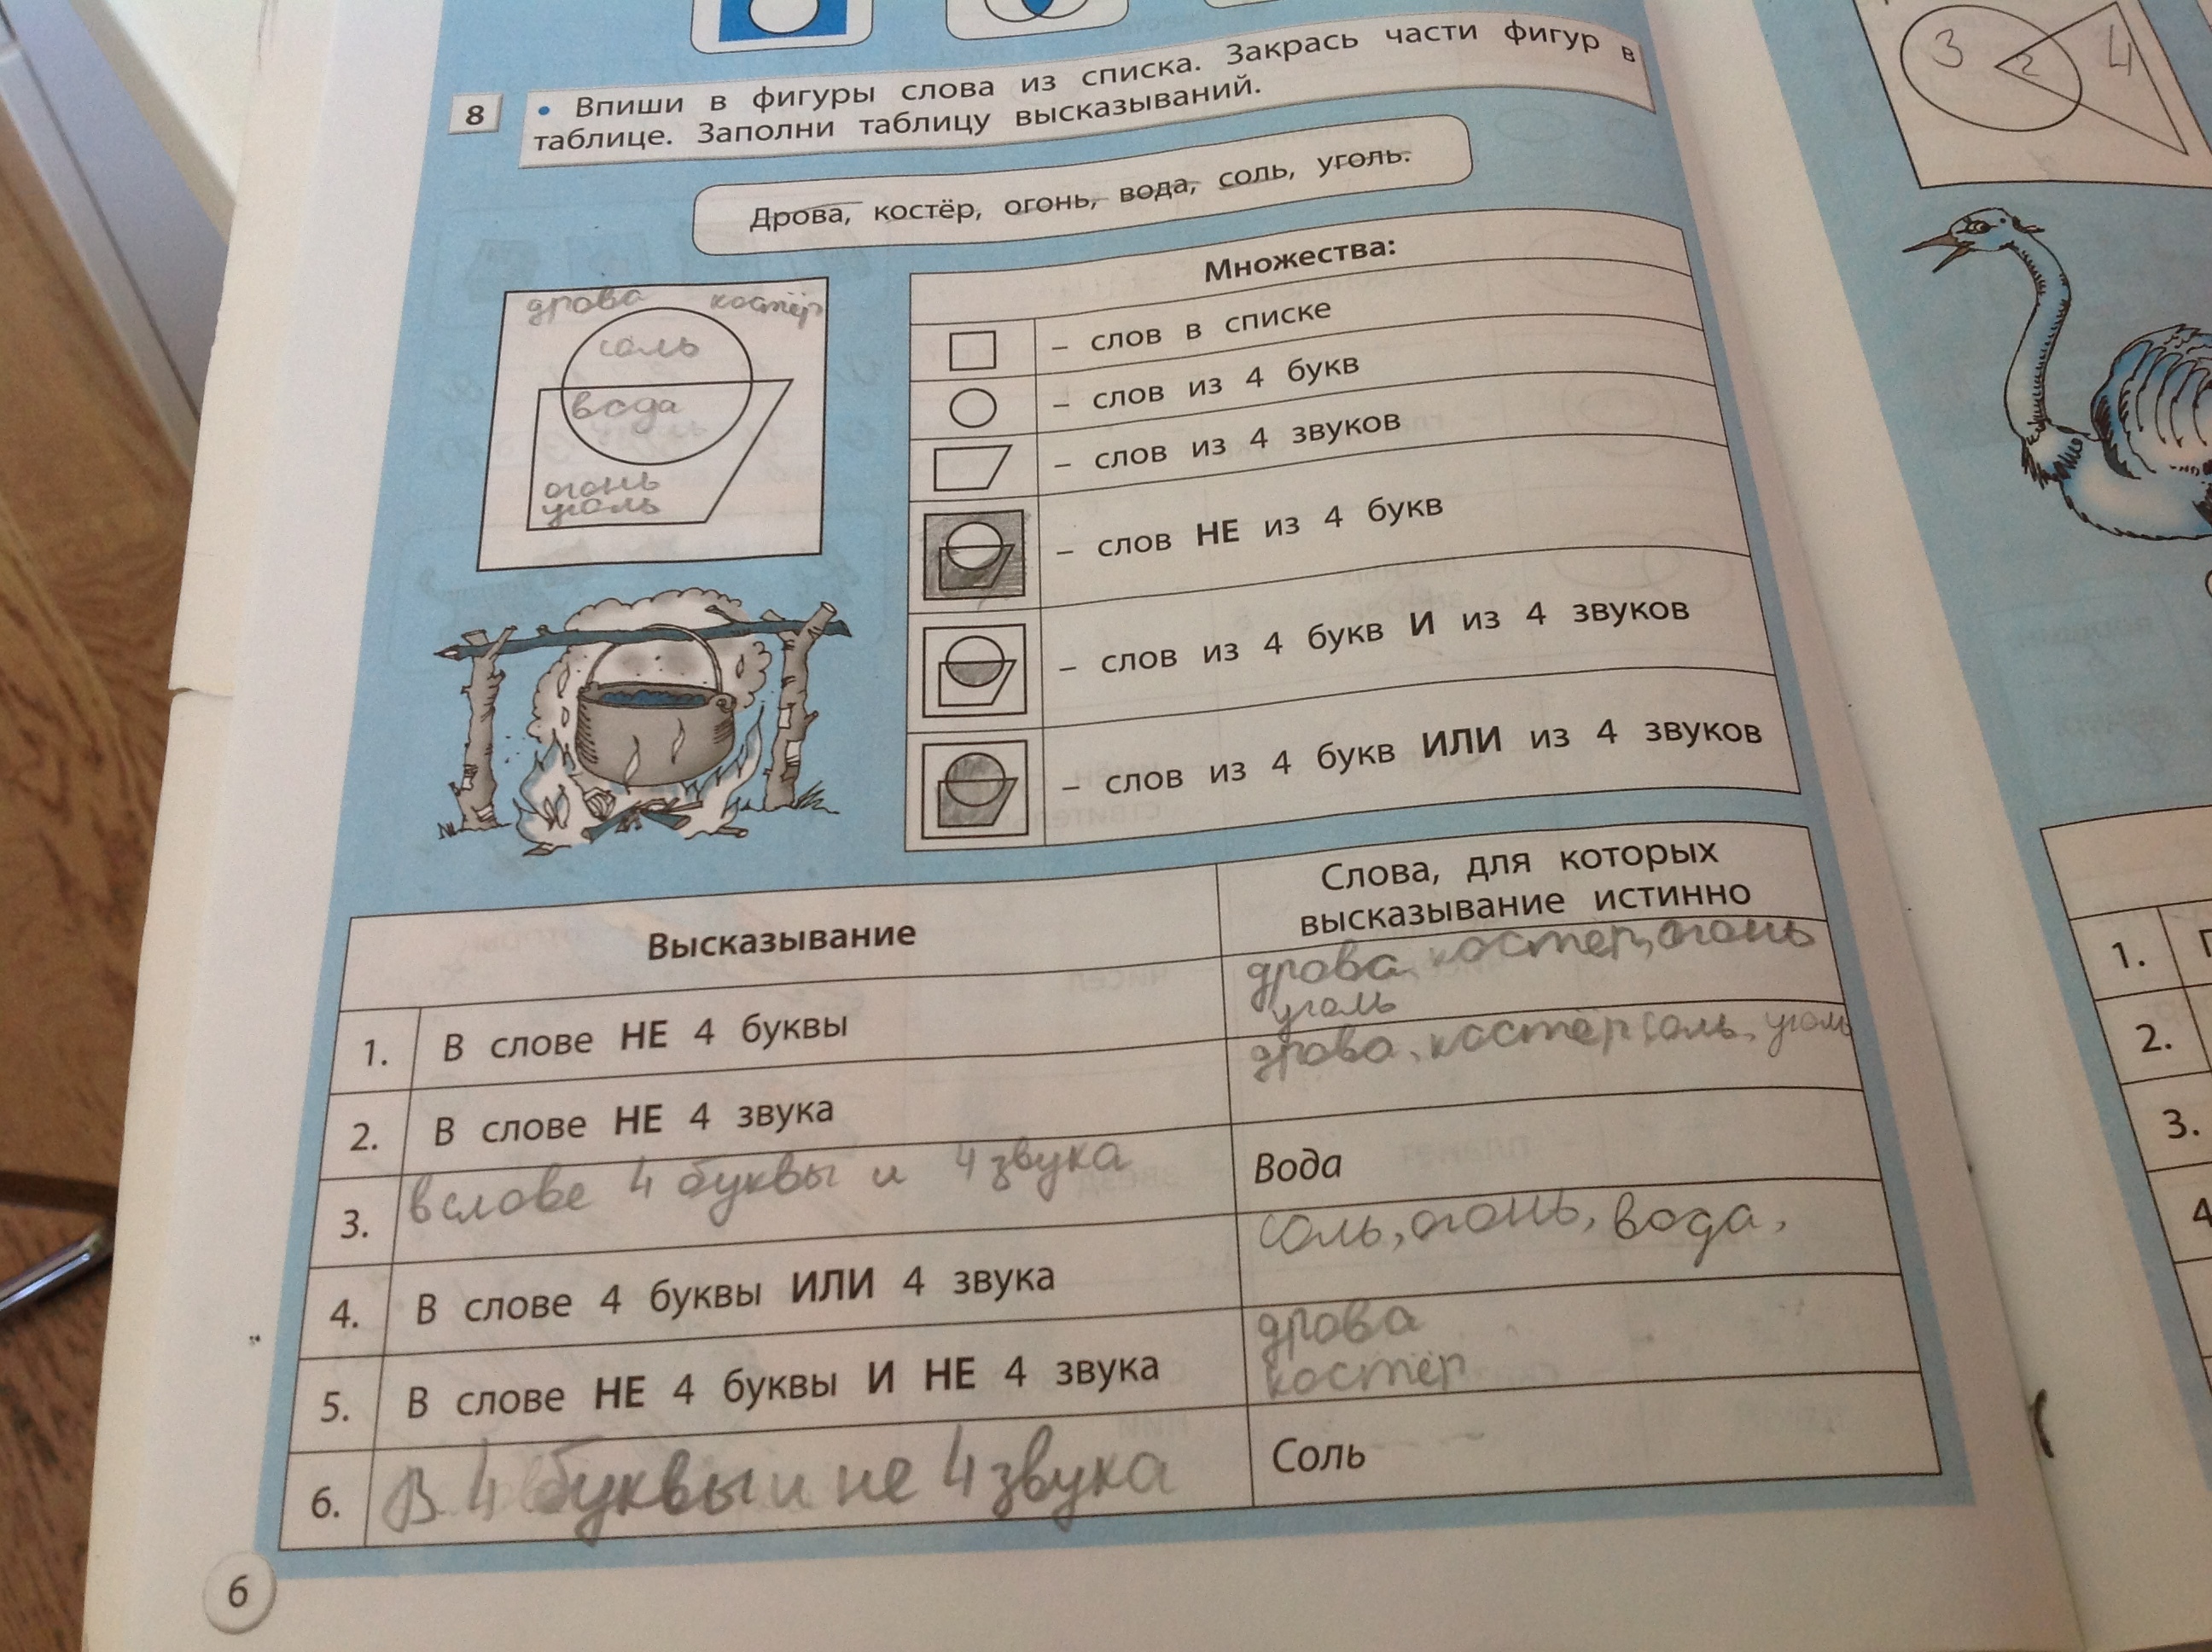 8
• Впиши в фигуры слова из списка. Закрась части фигур в
таблице. Заполни таблицу высказываний.
Дрова, костёр, огонь, вода, соль, уголь.
дрова костёр
соль
вода
огонь
уголь
Множества:
– слов в списке
– слов из 4 букв
– слов из 4 звуков
– слов НЕ из 4 букв
– слов из 4 букв И из 4 звуков
– слов из 4 букв ИЛИ из 4 звуков
Высказывание
Слова, для которых
высказывание истинно
1. В слове НЕ 4 буквы
дрова, костёр, огонь
уголь
2. В слове НЕ 4 звука
дрова, костёр соль, уголь
3. в слове 4 буквы и 4 звука
Вода
4. В слове 4 буквы ИЛИ 4 звука
соль, огонь, вода,
5. В слове НЕ 4 буквы И НЕ 4 звука
дрова
костёр
6. В 4 буквы и не 4 звука
Соль
6
3 2 4
1.
2.
3.
4